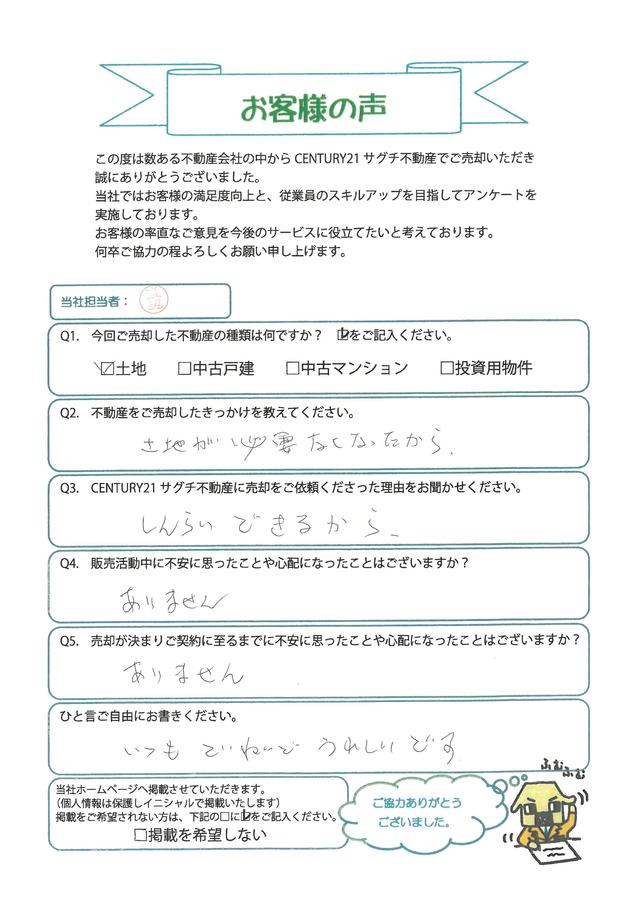 お客様の声
この度は数ある不動産会社の中から CENTURY21 サグチ不動産でご売却いただき
誠にありがとうございました。
当社ではお客様の満足度向上と、従業員のスキルアップを目指してアンケートを
実施しております。
お客様の率直なご意見を今後のサービスに役立てたいと考えております。
何卒ご協力の程よろしくお願い申し上げます。
当社担当者：
Q1. 今回ご売却した不動産の種類は何ですか？ ☑をご記入ください。
☑土地 □中古戸建 □中古マンション □投資用物件
Q2. 不動産をご売却したきっかけを教えてください。
土地が必要なくなったから.
Q3. CENTURY21 サグチ不動産に売却をご依頼くださった理由をお聞かせください。
しんらいできるから.
Q4. 販売活動中に不安に思ったことや心配になったことはございますか？
ありません
Q5. 売却が決まりご契約に至るまでに不安に思ったことや心配になったことはございますか？
ありません
ひと言ご自由にお書きください。
いつもていねいで うれしいです
当社ホームページへ掲載させていただきます。
（個人情報は保護しイニシャルで掲載いたします）
掲載をご希望されない方は、下記の□に☑をご記入ください。
□掲載を希望しない
ご協力ありがとう
ございました。
ふむ
ふむ